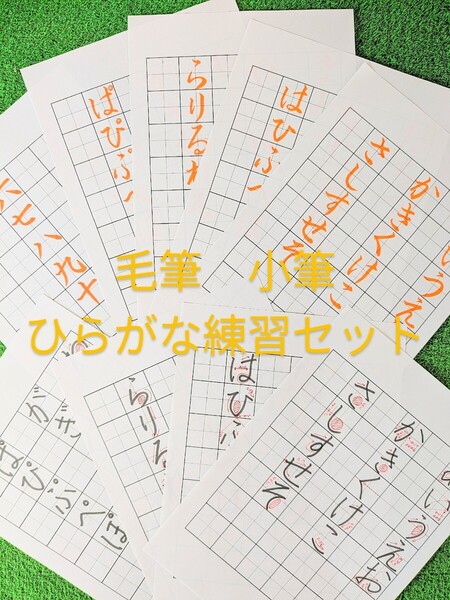 六七八九十
ぱぴぷ
らりるれ
はひふ
いうえ
かきくけこ
さしすせそ
毛筆　小筆
ひらがな練習セット
がぎ
ぱぴぷぺぽ
らりる
はひふ
あいうえお
かきくけこ
さしすせそ